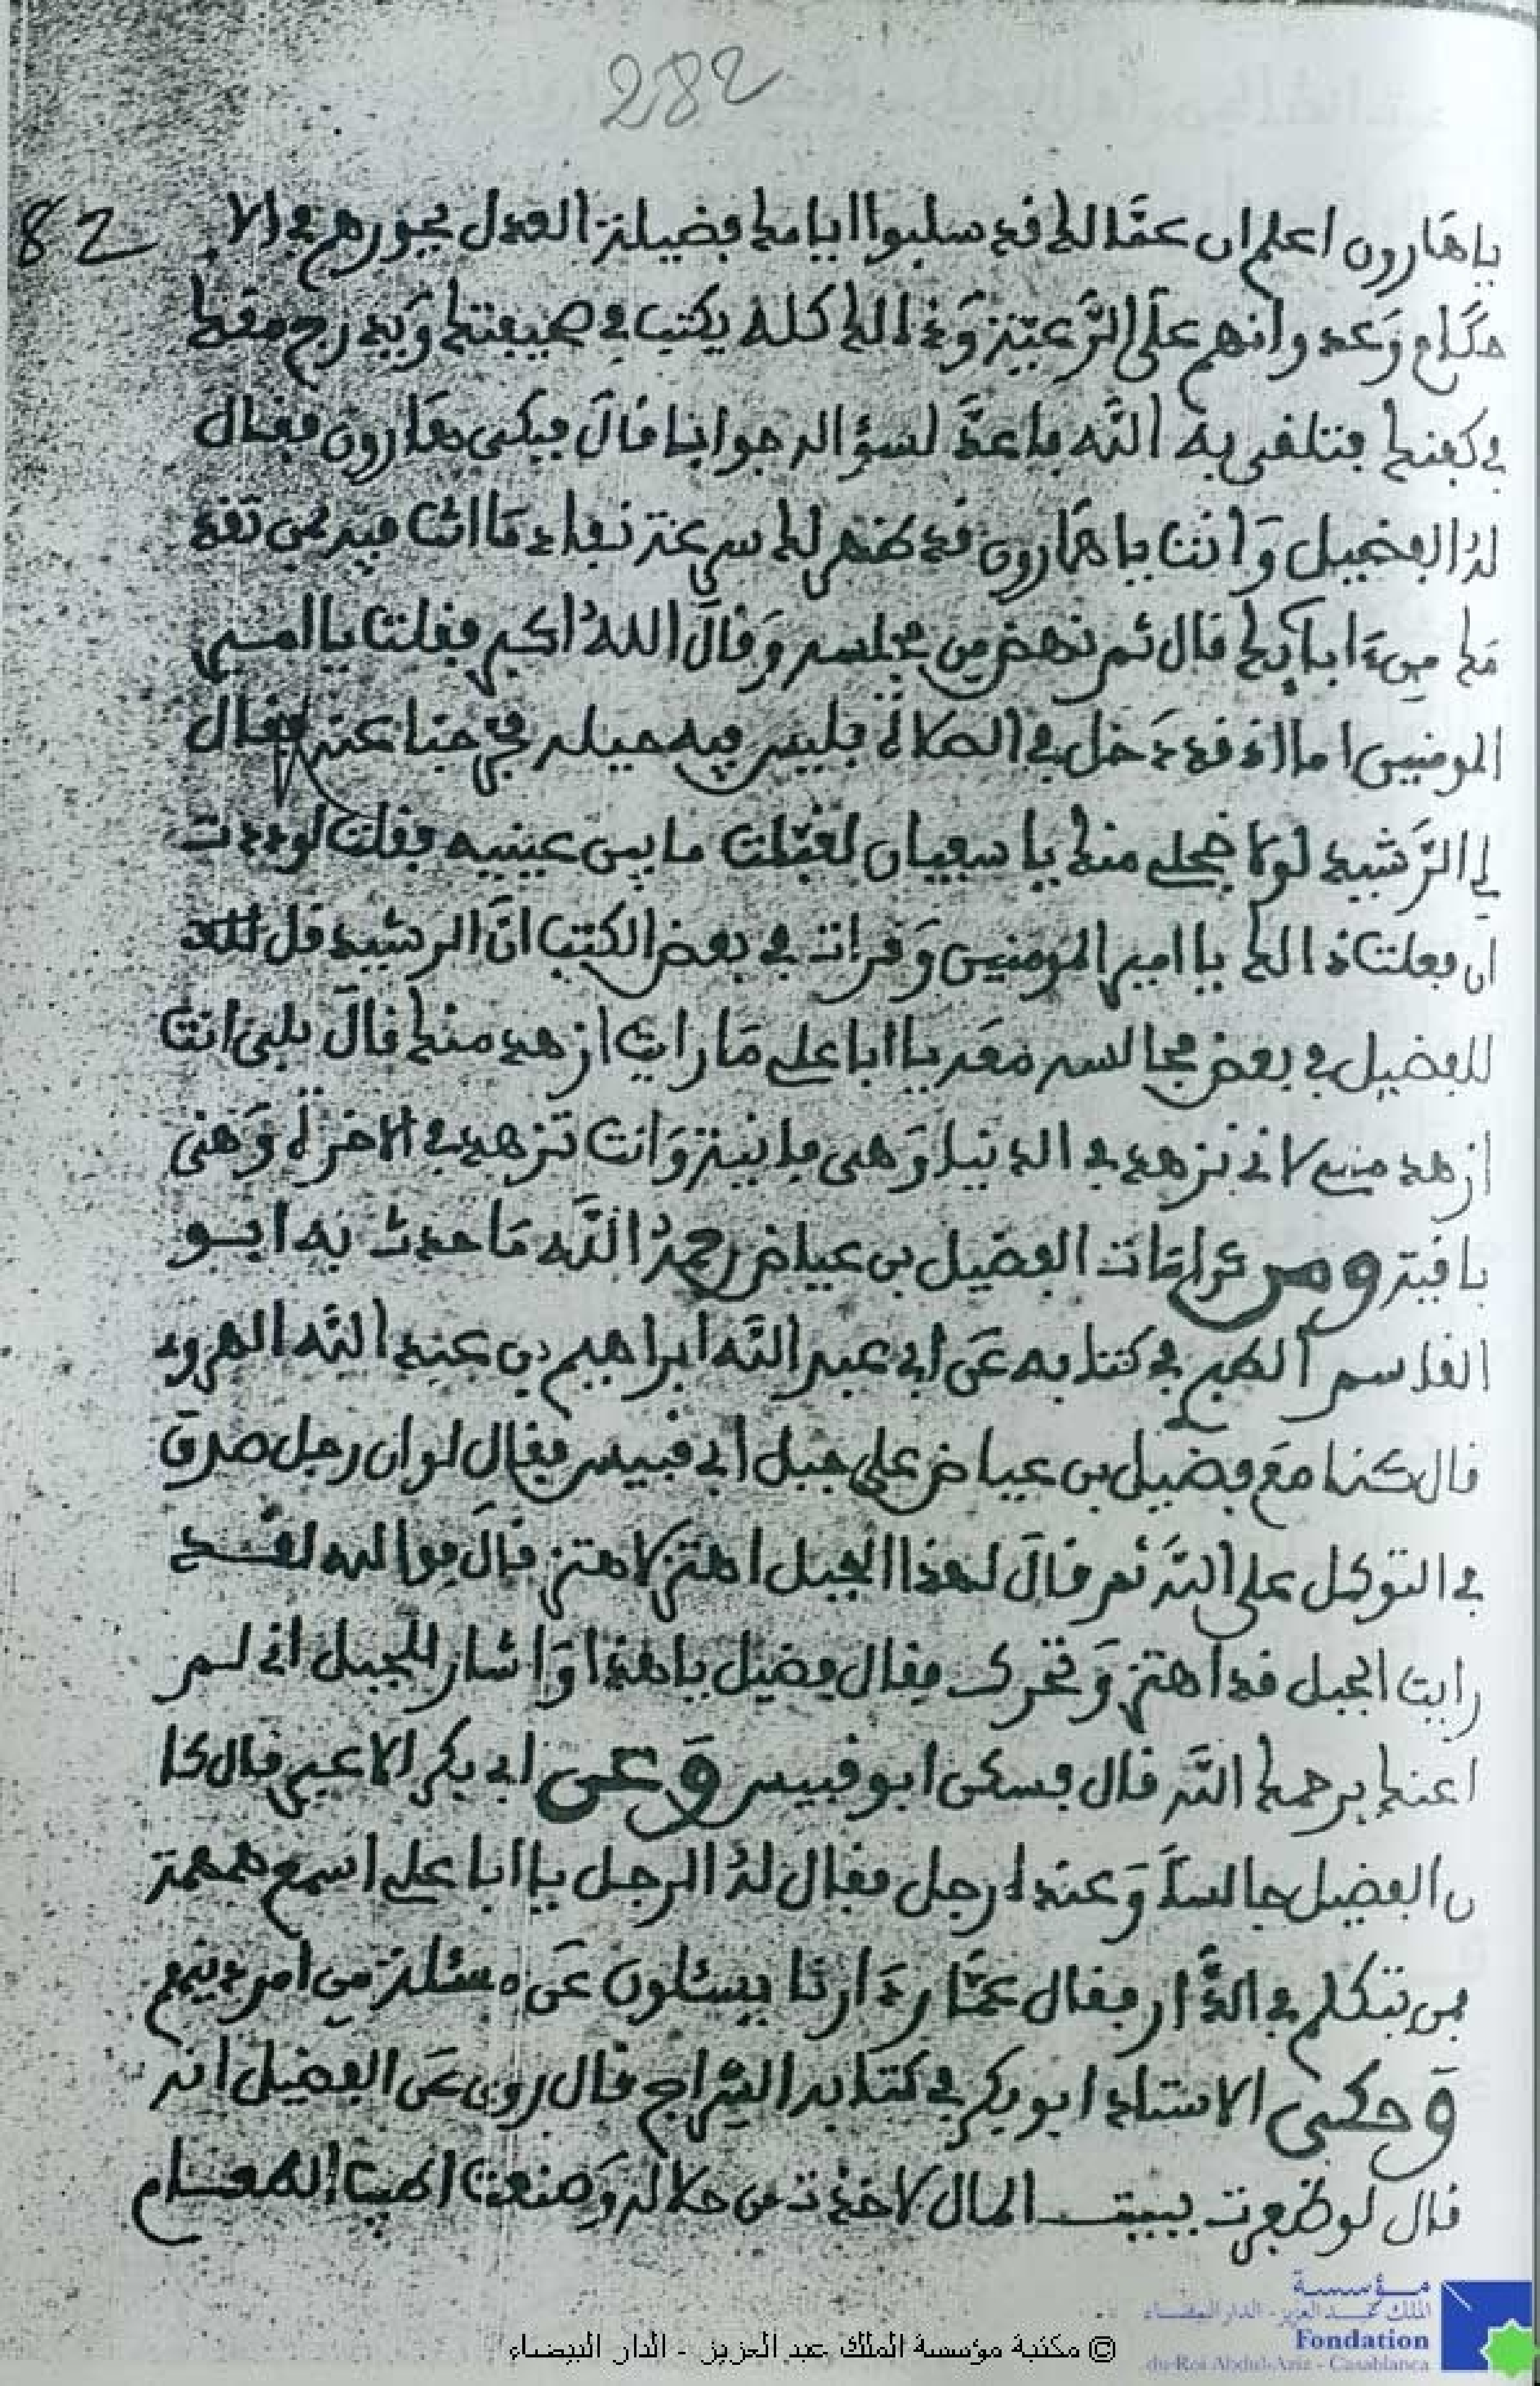 282
82
يا هارون اعلم ان عمّالك قد سلبوا ايامك فضيلة العدل بجورهم في الا
حكام وَعدوانهم علَى الرَّعيّة وَذالك كله يكتب في صحيفتك وَيدرج معك
في كفنك فتلقى به اللَّه فاعدَّ لسؤاله جوابا قالَ فبكى هارون فقال
لهُ الفضيل وَانت يا هارون قد ظهر لك سرعة نفاد مَا انت فيه بمن تقد
مك من ءابايك قال ثم نهض من مجلسه وَقالَ اللهُ اكبر فقلت يا امير
المومنين اما اذ قد دَخل في الصلاة فليس فيه حيلة فخرجنا عنه فقال
لي الرَّشيد لولا خجلي منك يا سفيان لقبّلت ما بين عينيه فقلت لوددت
ان فعلت ذالك يا امير المومنين وَقرات في بعض الكتب انَّ الرشيد قال
للفضيل في بعض مجالسه معَه يا ابا علي مَا رايت ازهد منك قالَ بلى انت
ازهد مني لاني نزهد في الدنيا وَهى فانية وَانت تزهد في الاخرة وَهى
باقية ومن كرامات الفضيل بن عياض رحمهُ اللَّه مَا حدث به ابو
القاسم الطبري في كتابه عَن ابي عبد اللَّه ابراهيم بن عبد اللَّه الهروي
قال كنا معَ فضيل بن عياض على جبل ابي قبيس فقال لو ان رجل صدق
في التوكل على اللهَ ثم قالَ لهذا الجبل اهتز لاهتز قالَ فوالله لقد
رايت الجبل قد اهتز وَتحرك فقال فضيل يا هذا وَاشار للجبل اني لم
اعنك يرحمك اللَّه قال فسكن ابو قبيس وَعن ابي بكر الاعين قال كا
ن الفضيل جالساً وَعنده رجل فقال لهُ الرجل يا ابا علي اسمع همهمة
من يتكلم في الدَّار فقال عمَّار دَارنا يسئلون عَن مسئلة من امر دينهم
وَحكى الاستاذ ابو بكر في كتابه السِّراج قال روى عَن الفضيل انه
قال لو ظفرت ببيت المال لاخذت من حلاله وَصنعت اطيب الطعام
مؤسسة
الملك عبد العزيز - الدار البيضاء
Fondation
du Roi Abdul-Aziz - Casablanca
© مكتبة مؤسسة الملك عبد العزيز - الدار البيضاء